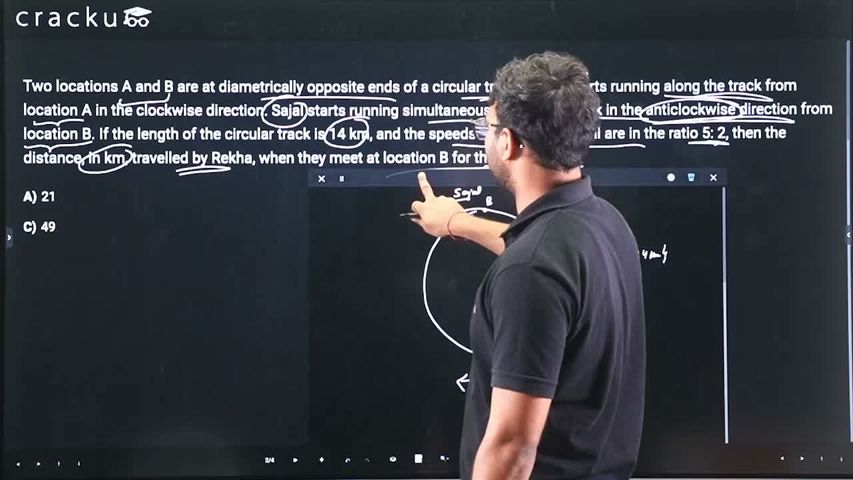 cracku
Two locations A and B are at diametrically opposite ends of a circular rts running along the track from
location A in the clockwise direction. Sajal starts running simultaneous k in the anticlockwise direction from
location B. If the length of the circular track is 14 km, and the speeds al are in the ratio 5: 2, then the
distance, in km travelled by Rekha, when they meet at location B for th
A) 21
C) 49
Sajal
B
2/4